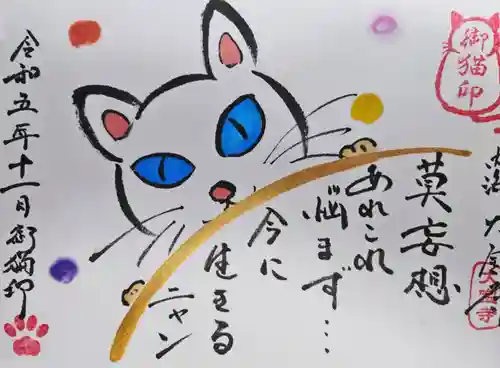 御猫印
莫妄想
あれこれ
悩まず…
今に
生きる
ニャン
令和五年十一月御猫印